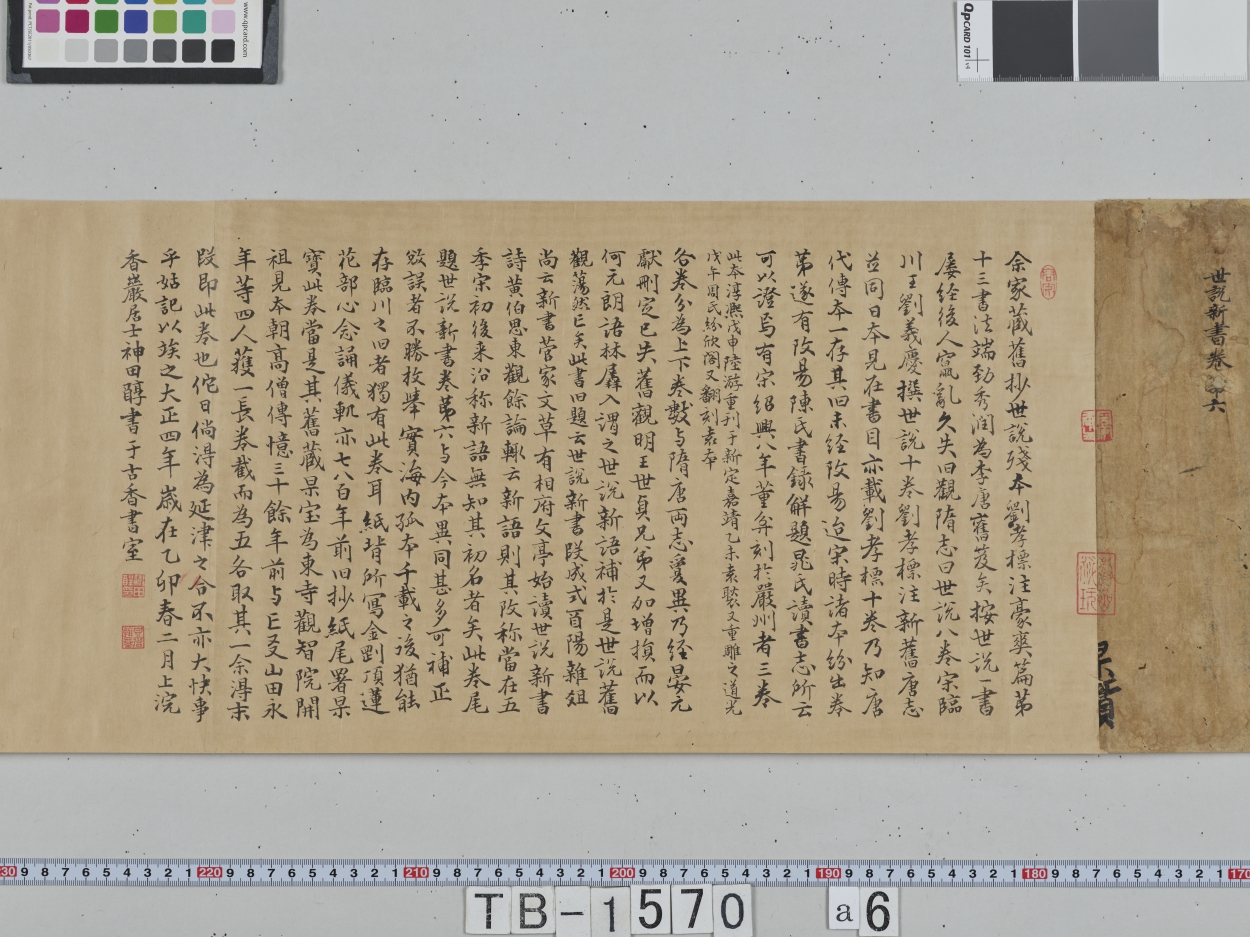 世說新書卷第六
杲寶
余家蔵舊抄世説殘本劉孝標注豪爽篇第
十三書法端勁秀潤為李唐舊笈矣按世説一書
屡経後人竄亂久失旧觀隋志曰世説八巻宋臨
川王劉義慶撰世説十巻劉孝標注新舊唐志
並同日本見在書目亦載劉孝標十巻乃知唐
代傳本一存其旧未経改易迨宋時諸本紛出巻
第遂有改易陳氏書録解題晁氏讀書志所云
可以證焉有宋紹興八年董弅刻於嚴州者三巻
此本淳熙戊申陸游重刊于新定嘉靖乙未袁褧又重雕之道光
戊午周氏紛欣閣又翻刻袁本
各巻分為上下巻數与隋唐両志夐異乃経晏元
獻刪定已失舊觀明王世貞兄弟又加増損而以
何元朗語林羼入謂之世説新語補於是世説舊
觀蕩然已矣此書旧題云世説新書段成式酉陽雜俎
尚云新書菅家文草有相府文亭始讀世説新書
詩黄伯思東觀餘論輙云新語則其改称當在五
季宋初後来沿称新語無知其初名者矣此巻尾
題世説新書巻第六与今本異同甚多可補正
敓誤者不勝枚舉實海内孤本千載之後猶能
存臨川之旧者獨有此巻耳紙背所寫金剛頂蓮
花部心念誦儀軌亦七八百年前旧抄紙尾署杲
寶此巻當是其舊蔵杲宝為東寺觀智院開
祖見本朝高僧傳憶三十餘年前与亡友山田永
年等四人獲一長巻截而為五各取其一余得末
段即此巻也佗日倘得為延津之合不亦大快事
乎姑記以竢之大正四年歳在乙卯春二月上浣
香巖居士神田醇書于古香書室
QPCARD 101 v4
www.qpcard.com
TB-1570 a6